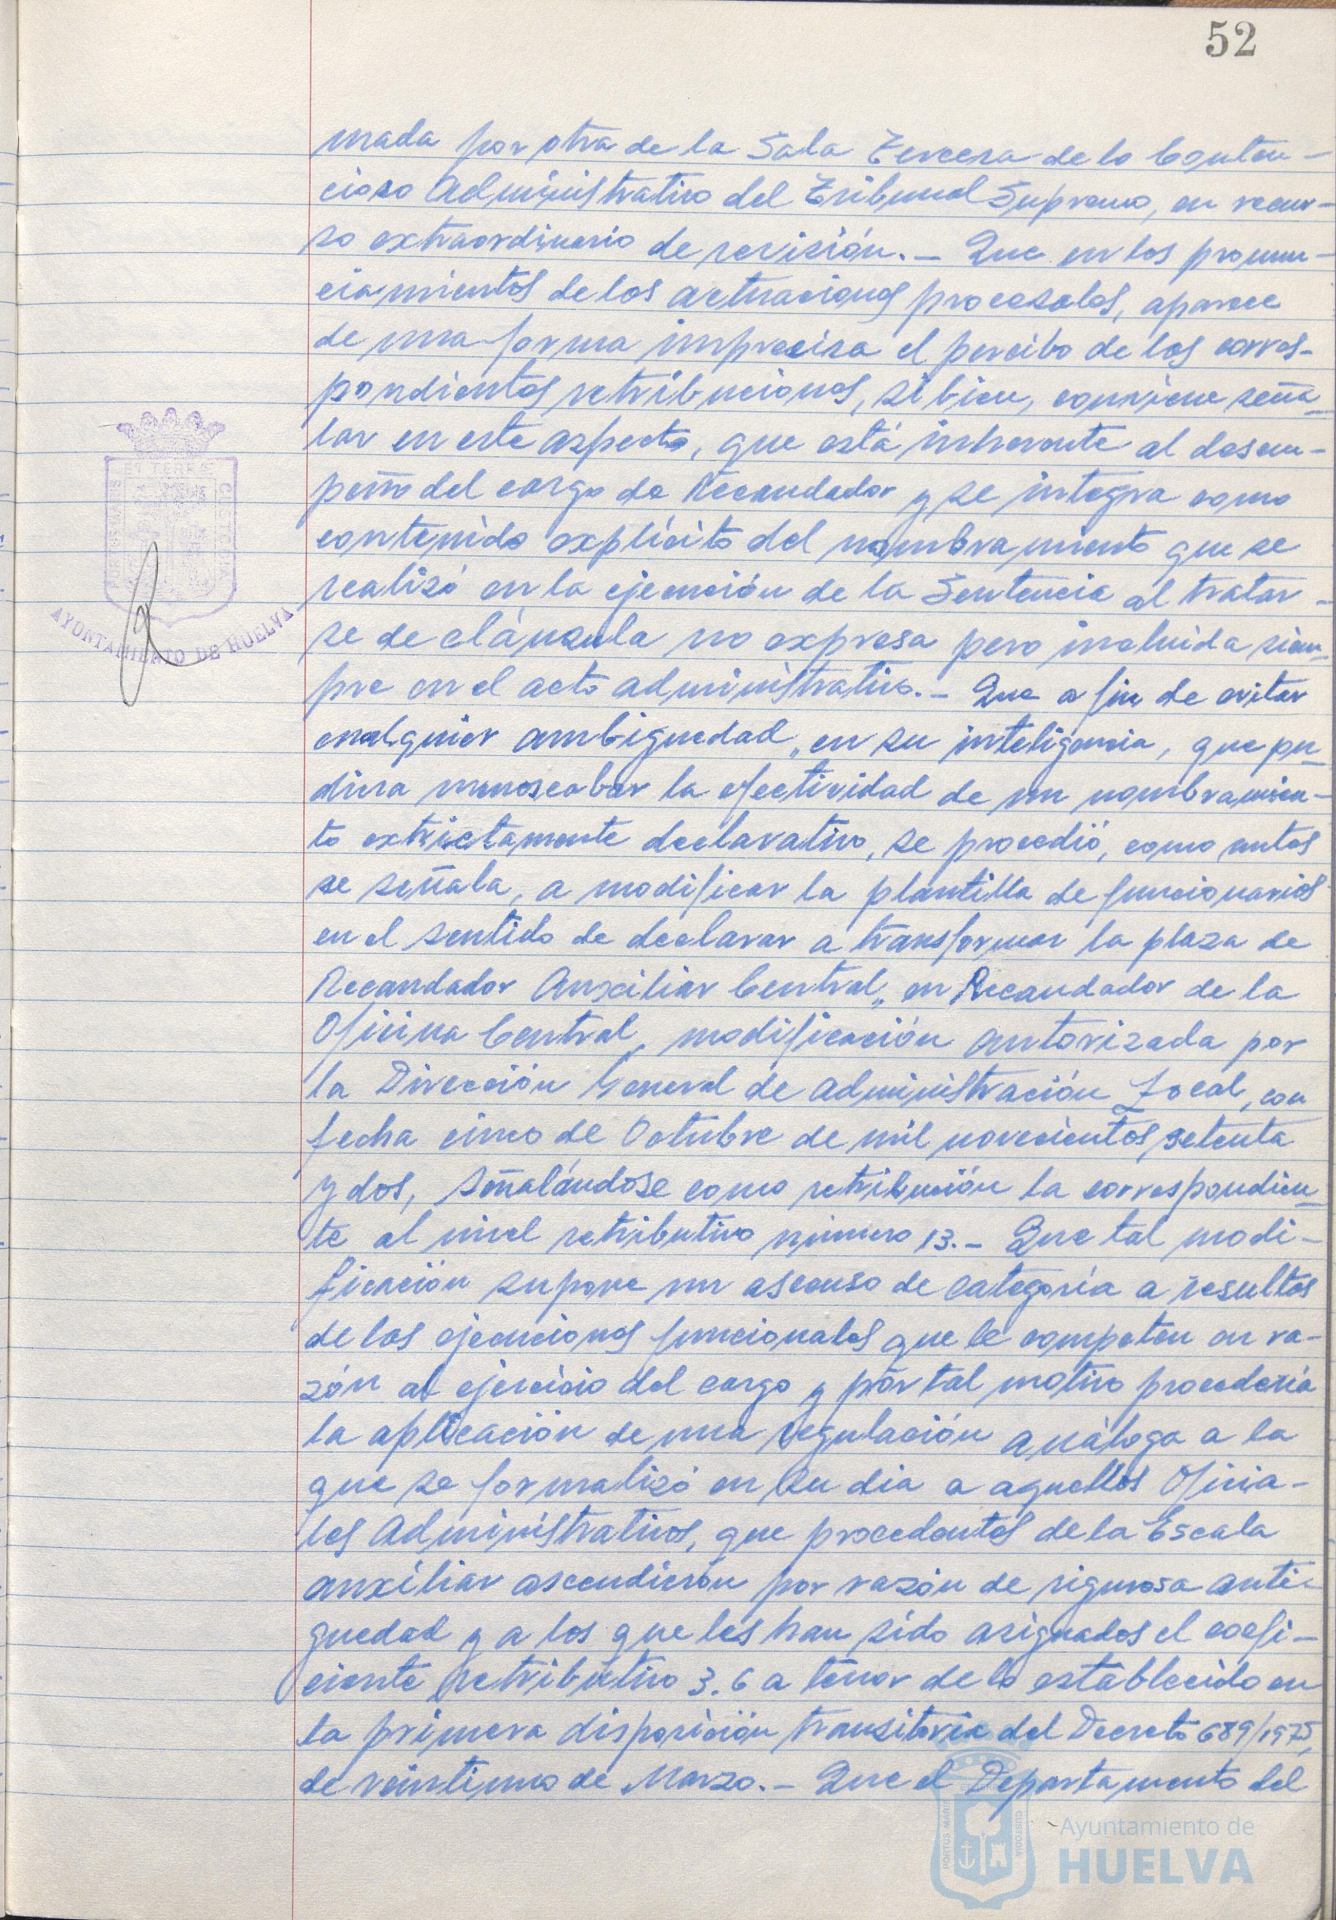 52
mada por otra de la Sala Tercera de lo Conten-
cioso Administrativo del Tribunal Supremo, en recur-
so extraordinario de revisión.- Que en los pronun-
ciamientos de los actuaciones procesales, aparece
de una forma imprecisa el percibo de las corres-
pondientes retribuciones, si bien, conviene seña-
lar en este aspecto, que está inherente al desem-
peño del cargo de Recaudador y se integra como
contenido explícito del nombramiento que se
realizó en la ejecución de la Sentencia al tratar-
se de cláusula no expresa pero incluida siem-
pre en el acto administrativo.- Que a fin de evitar
cualquier ambiguedad, en su inteligencia, que pu-
diera menoscabar la efectividad de un nombramien-
to extrictamente declarativo, se procedió, como antes
se señala, a modificar la plantilla de funcionarios
en el sentido de declarar a transformar la plaza de
Recaudador Auxiliar Central, en Recaudador de la
Oficina Central, modificación autorizada por
la Dirección General de Administración Local, con
fecha cinco de Octubre de mil novecientos setenta
y dos, señalándose como retribución la correspondien-
te al nivel retributivo número 13.- Que tal modi-
ficación supone un ascenso de categoría a resultas
de las ejecuciones funcionales que le competen en ra-
zón al ejercicio del cargo y por tal motivo procedería
la aplicación de una regulación análoga a la
que se formalizó en su dia a aquellos Oficia-
les Administrativos, que procedentes de la Escala
auxiliar ascendieron por razón de rigurosa anti-
guedad y a los que les han sido asignados el coefi-
ciente retributivo 3.6 a tenor de lo establecido en
la primera disposición transitoria del Decreto 689/1975,
de veintiuno de Marzo.- Que el Departamento del
PORTUS MARIS ET TERRAE CUSTODIA
AYUNTAMIENTO DE HUELVA
PORTUS MARIS CUSTODIA
Ayuntamiento de
HUELVA